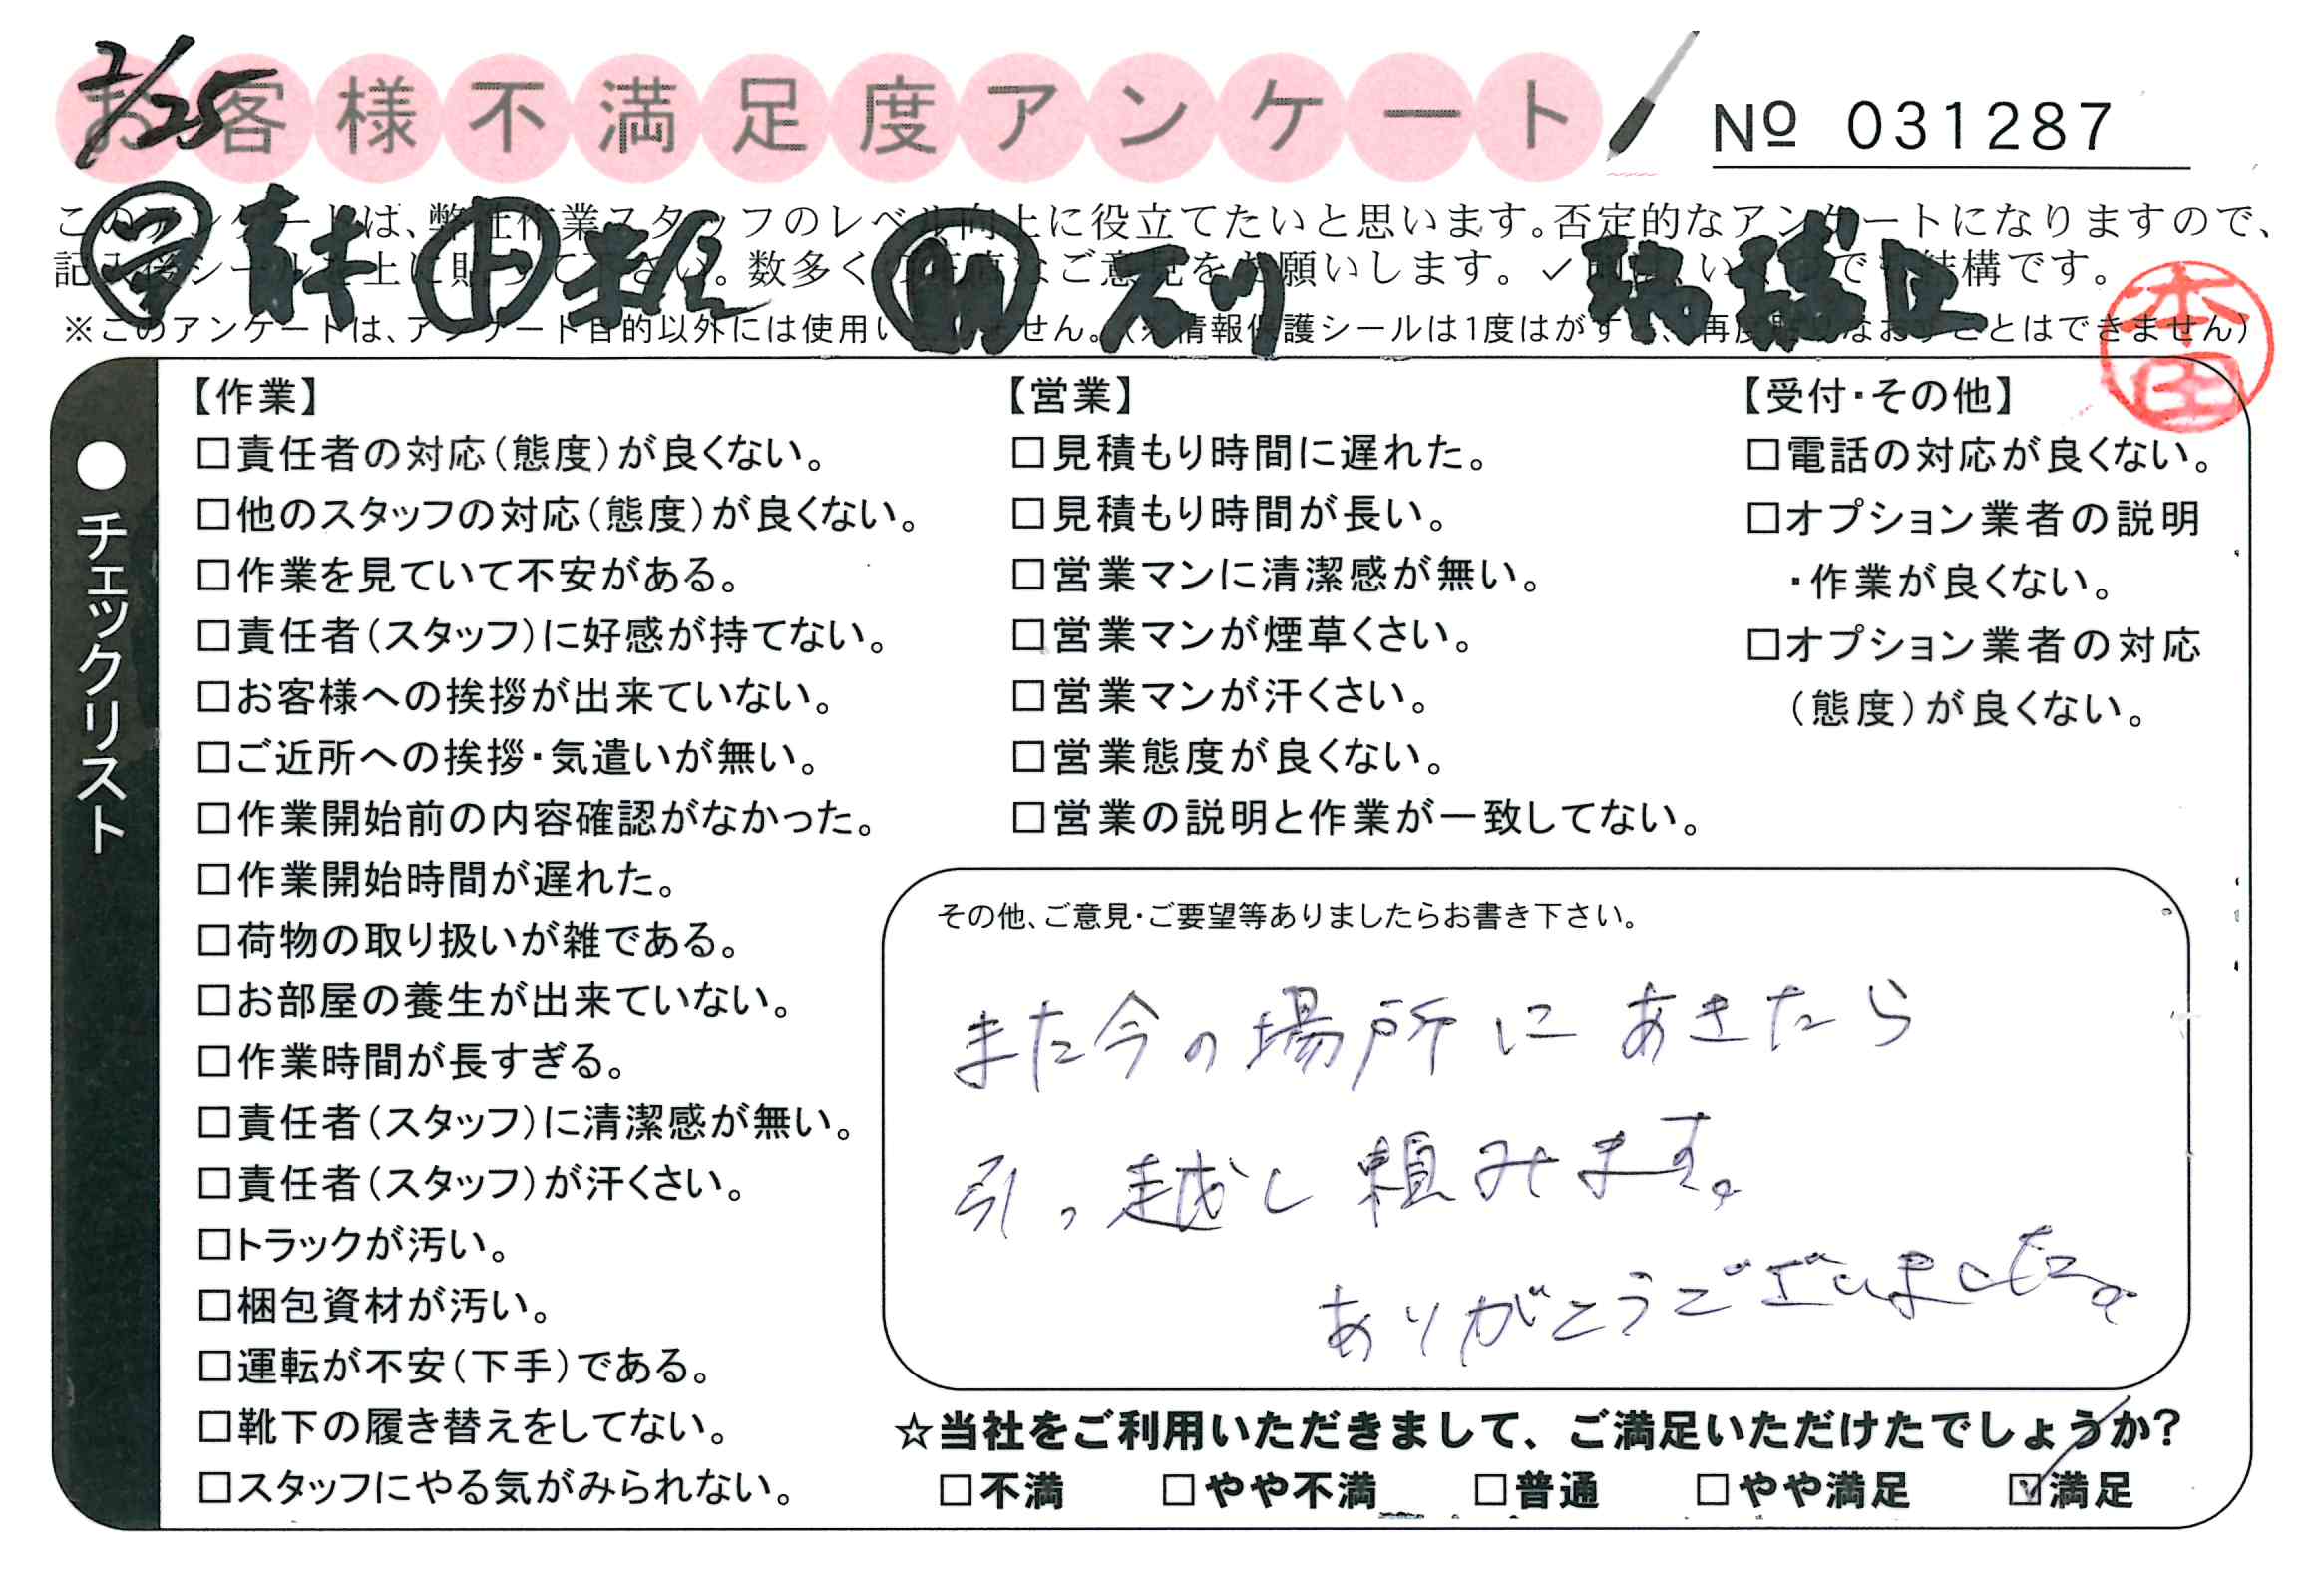 2/25
お客様不満足度アンケート
№ 031287
このアンケートは、弊社作業スタッフのレベル向上に役立てたいと思います。否定的なアンケートになりますので、
記入後シールを上に貼って下さい。数多くの正直なご意見をお願いします。✓印はいくつでも結構です。
※このアンケートは、アンケート目的以外には使用いたしません。(※情報保護シールは1度はがすと、再度貼りなおすことはできません)
本田
●チェックリスト
【作業】
□責任者の対応(態度)が良くない。
□他のスタッフの対応(態度)が良くない。
□作業を見ていて不安がある。
□責任者(スタッフ)に好感が持てない。
□お客様への挨拶が出来ていない。
□ご近所への挨拶・気遣いが無い。
□作業開始前の内容確認がなかった。
□作業開始時間が遅れた。
□荷物の取り扱いが雑である。
□お部屋の養生が出来ていない。
□作業時間が長すぎる。
□責任者(スタッフ)に清潔感が無い。
□責任者(スタッフ)が汗くさい。
□トラックが汚い。
□梱包資材が汚い。
□運転が不安(下手)である。
□靴下の履き替えをしてない。
□スタッフにやる気がみられない。
【営業】
□見積もり時間に遅れた。
□見積もり時間が長い。
□営業マンに清潔感が無い。
□営業マンが煙草くさい。
□営業マンが汗くさい。
□営業態度が良くない。
□営業の説明と作業が一致してない。
【受付・その他】
□電話の対応が良くない。
□オプション業者の説明
・作業が良くない。
□オプション業者の対応
(態度)が良くない。
その他、ご意見・ご要望等ありましたらお書き下さい。
また今の場所にあきたら
引っ越し頼みます。
ありがとうございました。
☆当社をご利用いただきまして、ご満足いただけたでしょうか?
□不満 □やや不満 □普通 □やや満足 ☑満足